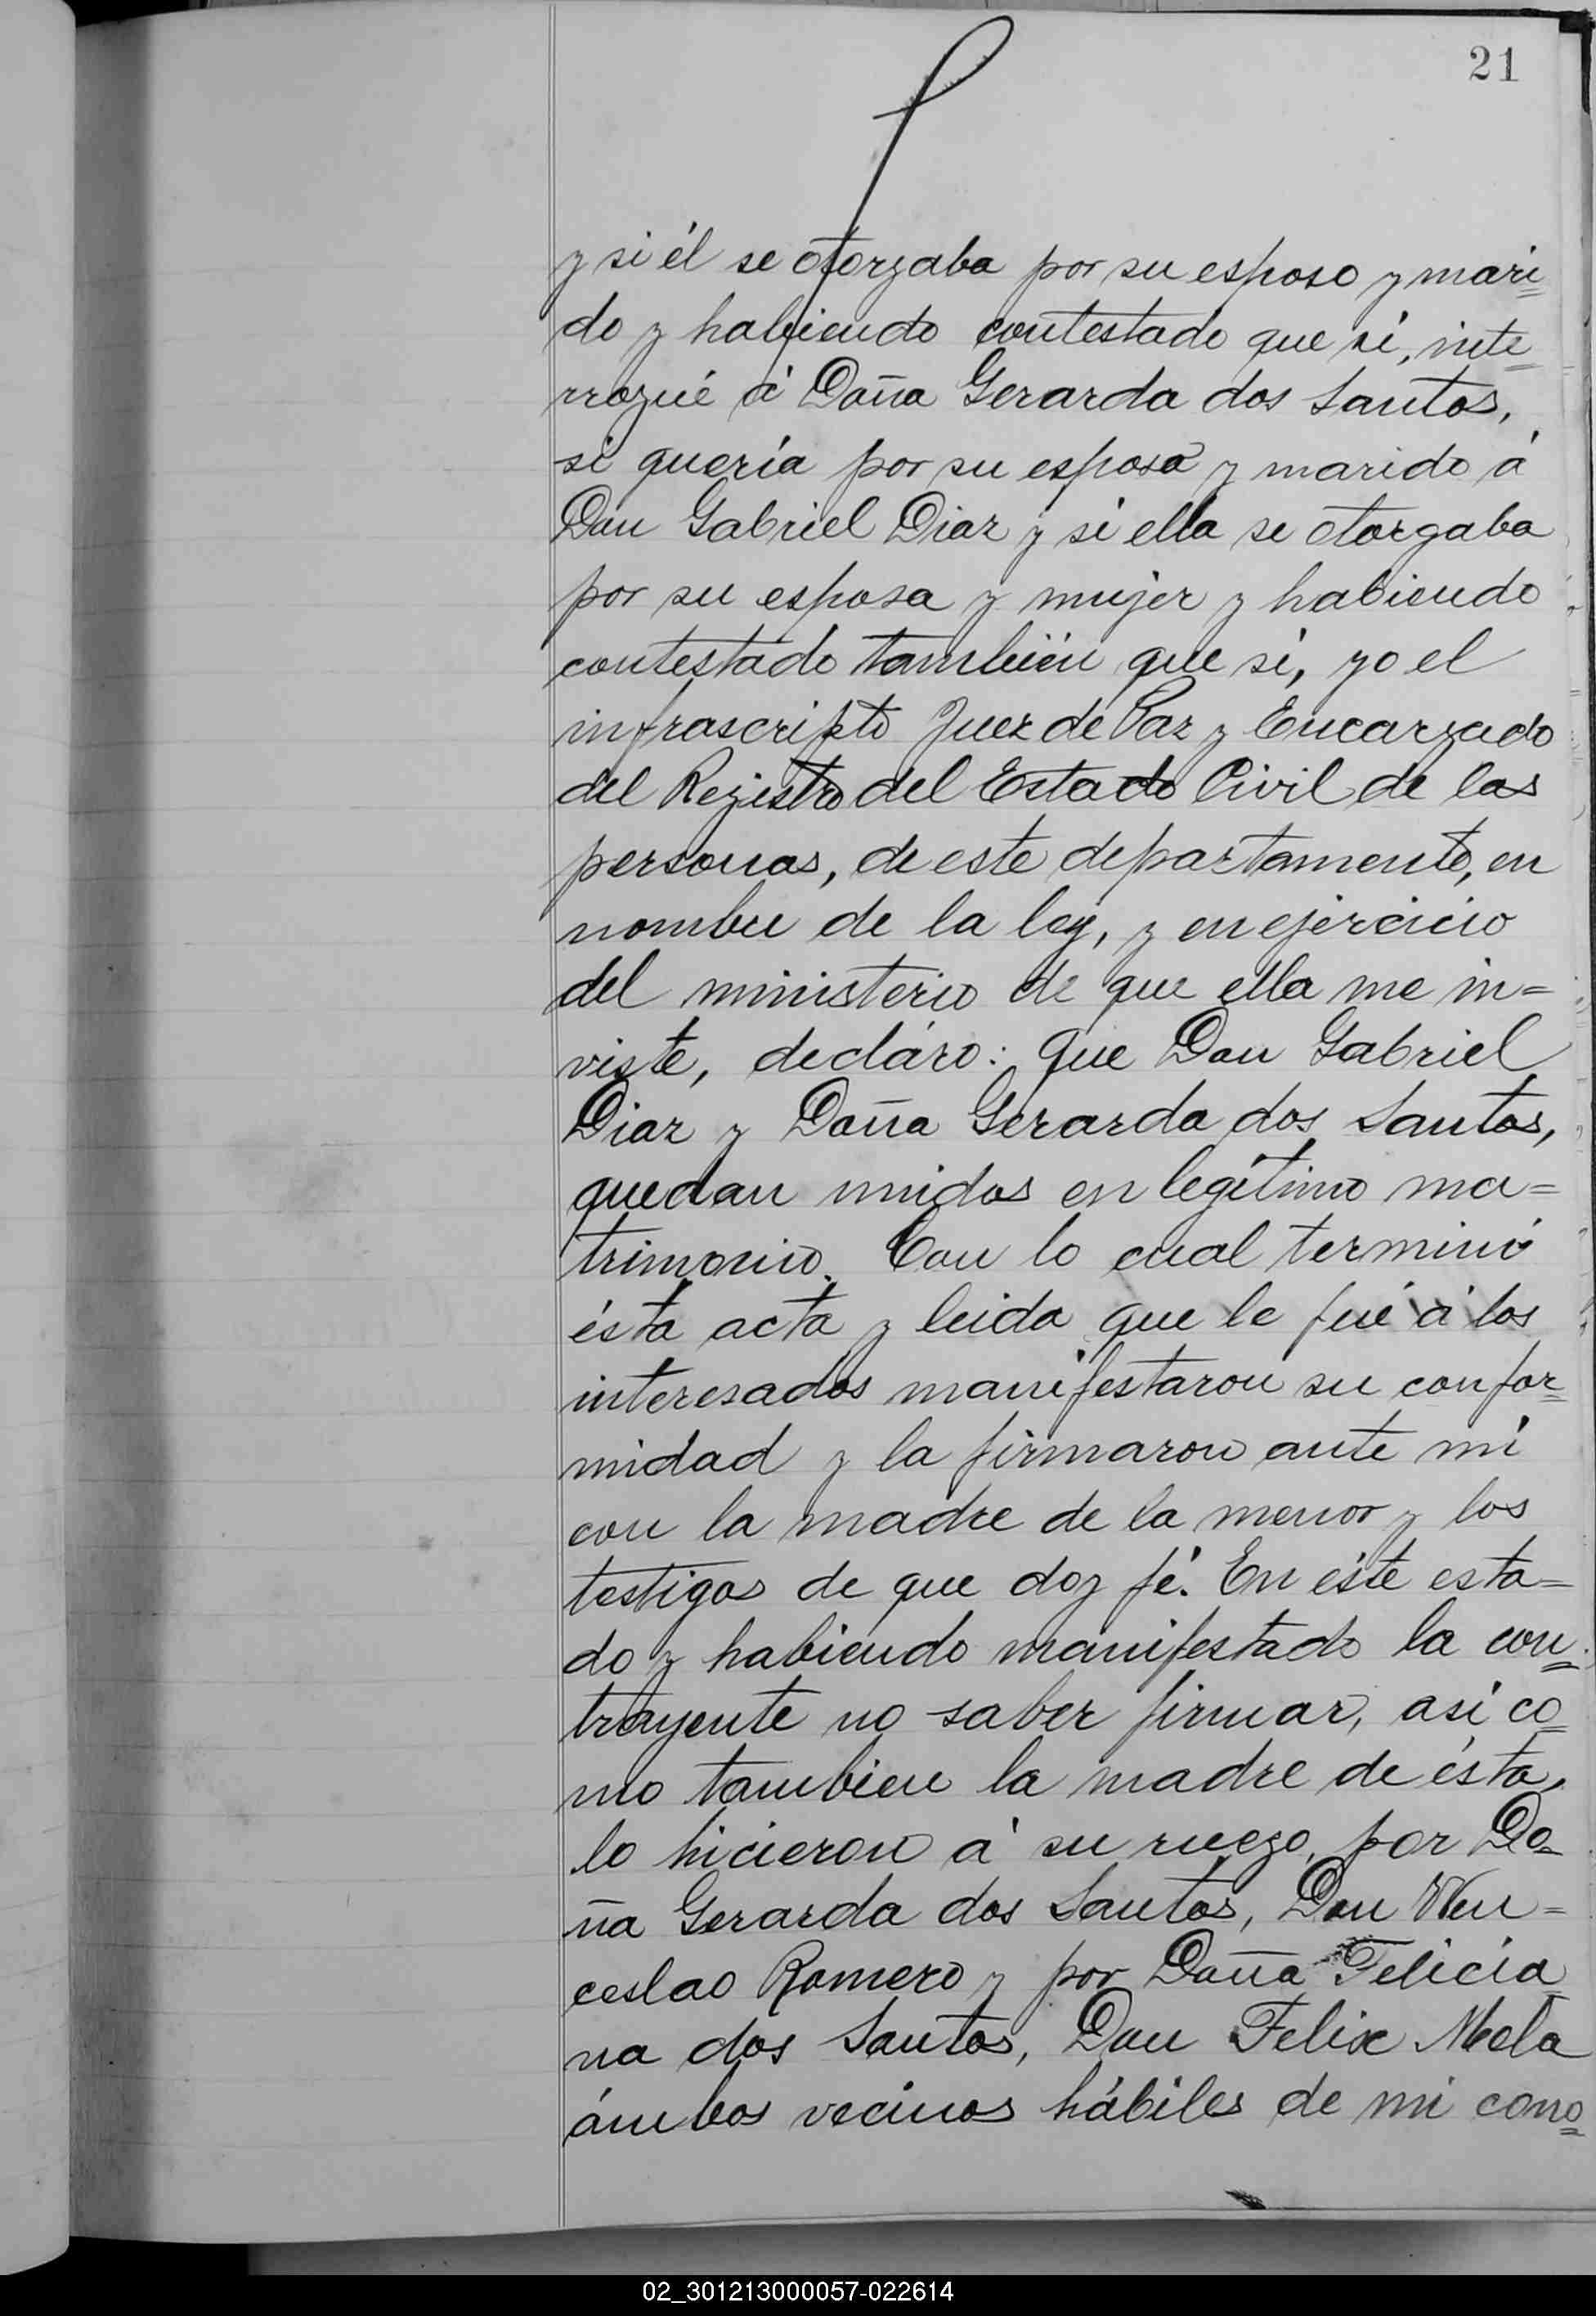 21
y si él se otorgaba por su esposo y mari=
do y habiendo contestado que si, inte=
rrogué á Doña Gerarda dos Santos,
si quería por su esposo y marido á
Don Gabriel Diaz y si ella se otorgaba
por su esposa y mujer y habiendo
contestado también que si, yo el
infrascripto Juez de Paz y Encargado
del Registro del Estado Civil de las
personas, de este departamento, en
nombre de la ley, y en ejercicio
del ministerio de que ella me in=
viste, decláro: que Don Gabriel
Diaz y Doña Gerarda dos Santos,
quedan unidos en legítimo ma=
trimonio. Con lo cual terminó
ésta acta y leida que le fué á los
interesados manifestaron su confor=
midad y la firmaron ante mi
con la madre de la menor y los
testigos de que doy fé. En éste esta=
do y habiendo manifestado la con=
trayente no saber firmar, asi co=
mo tambien la madre de ésta,
lo hicieron á su ruego, por Do=
ña Gerarda dos Santos, Don Wen=
ceslao Romero y por Doña Felicia
na dos Santos, Don Felix Mela
ámbos vecinos hábiles de mi cono=
02_301213000057-022614